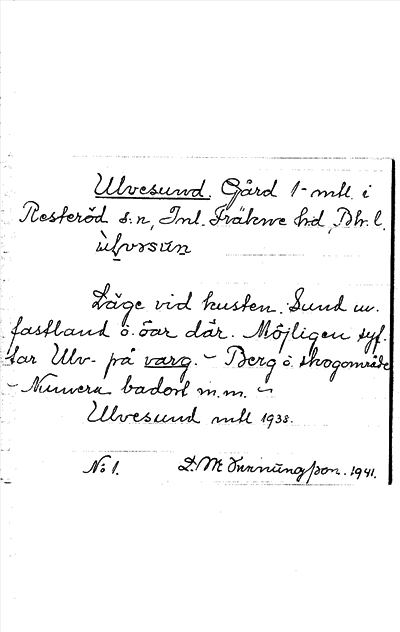 Ulvesund. Gård 1 mtl. i
Resteröd s:n, Inl. Fräkne hd, Bh. l.
Läge vid kusten. Sund m.
fastland o. öar där. Möjligen syf-
tar Ulv- på varg. - Berg o. skogområde
- Numera badort m.m. -
Ulvesund mtl 1938.
No 1.
1941.